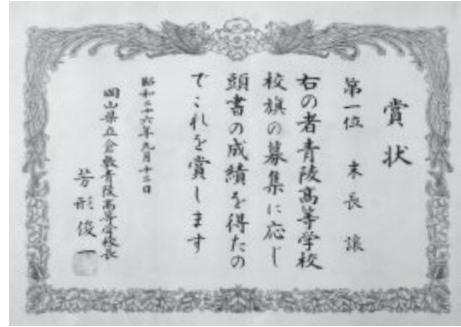 賞状
第一位 末長讓
右の者青陵高等学校
校旗の募集に応じ
頭書の成績を得たの
でこれを賞します
昭和二十六年九月十二日
岡山県立倉敷青陵高等学校長
芳形俊一